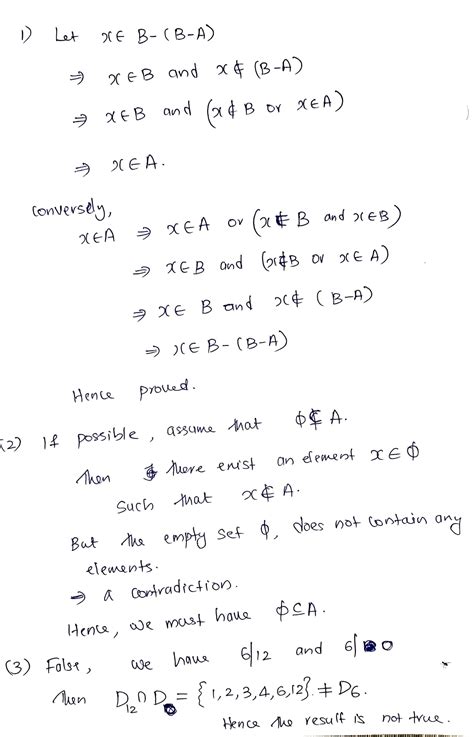 1) Let x ∈ B-(B-A)
⇒ x ∈ B and x ∉ (B-A)
⇒ x ∈ B and (x ∉ B or x ∈ A)
⇒ x ∈ A.
conversely,
x ∈ A ⇒ x ∈ A or (x ∉ B and x ∈ B)
⇒ x ∈ B and (x ∉ B or x ∈ A)
⇒ x ∈ B and x ∉ (B-A)
⇒ x ∈ B-(B-A)
Hence proved.
(2) If possible, assume that ϕ ⊈ A.
Then there exist an element x ∈ ϕ
such that x ∉ A.
But the empty set ϕ, does not contain any
elements.
⇒ a contradiction.
Hence, we must have ϕ ⊆ A.
(3) False, we have 6/12 and 6/ 0
Then D₁₂ ∩ D = {1, 2, 3, 4, 6, 12} ≠ D₆.
Hence the result is not true.